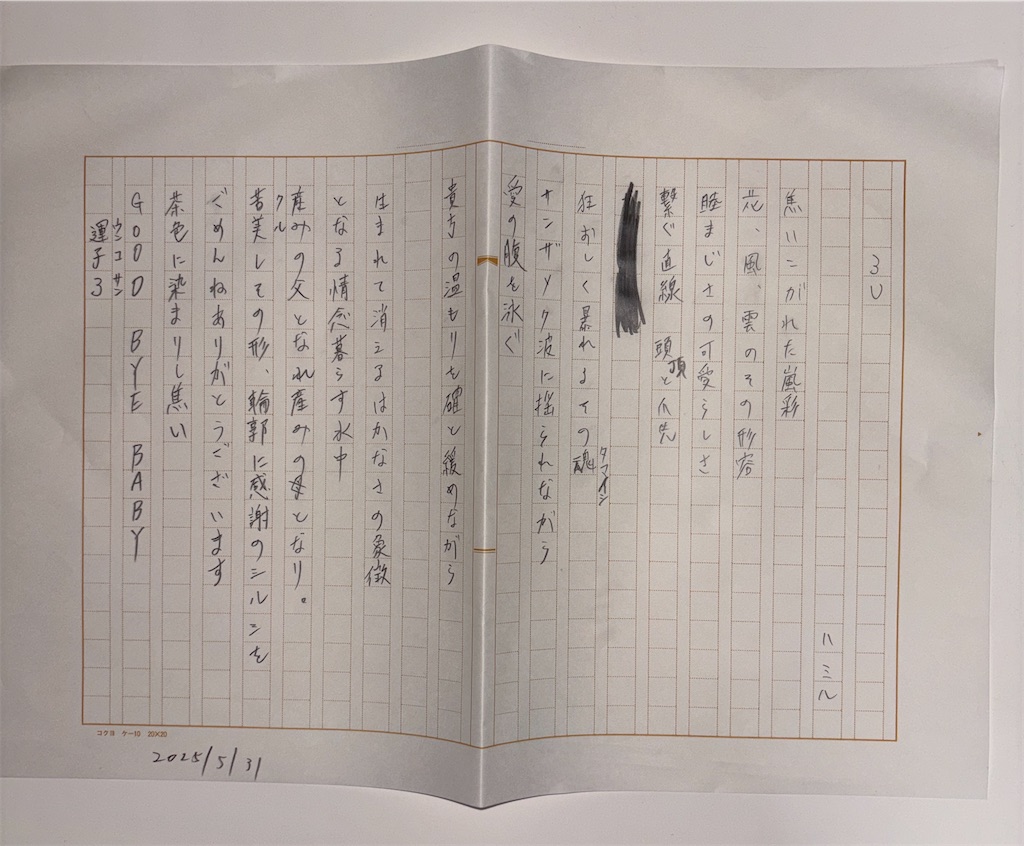 3U
ハミル
焦いこがれた嵐彩
花、風、雲のその形容
睦まじさの可愛らしさ
繋ぐ直線 頭頂と爪先
狂おしく暴れるその魂
タマイシ
サンザメク波に揺られながら
愛の腹を泳ぐ
貴方の温もりを確と緩めながら
生まれて消えるはかなさの象徴
となる情念暮らす水中
産みの父となれ産みの母となり。
クル
苦美しその形、輪郭に感謝のシルシを
ごめんねありがとうございます
茶色に染まりし焦い
GOOD BYE BABY
ウンコサン
運子3
コクヨ ケー10 20×20
2025/5/31